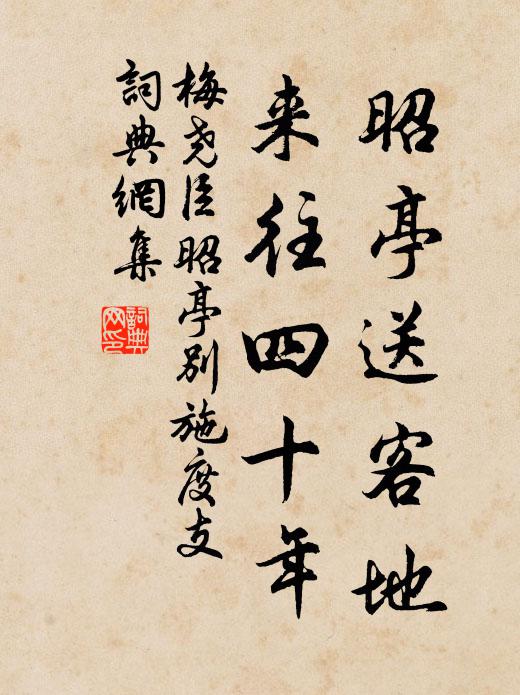 昭亭送客地
来往四十年
梅尧臣昭亭别施度支
詞典網集
詞典网印